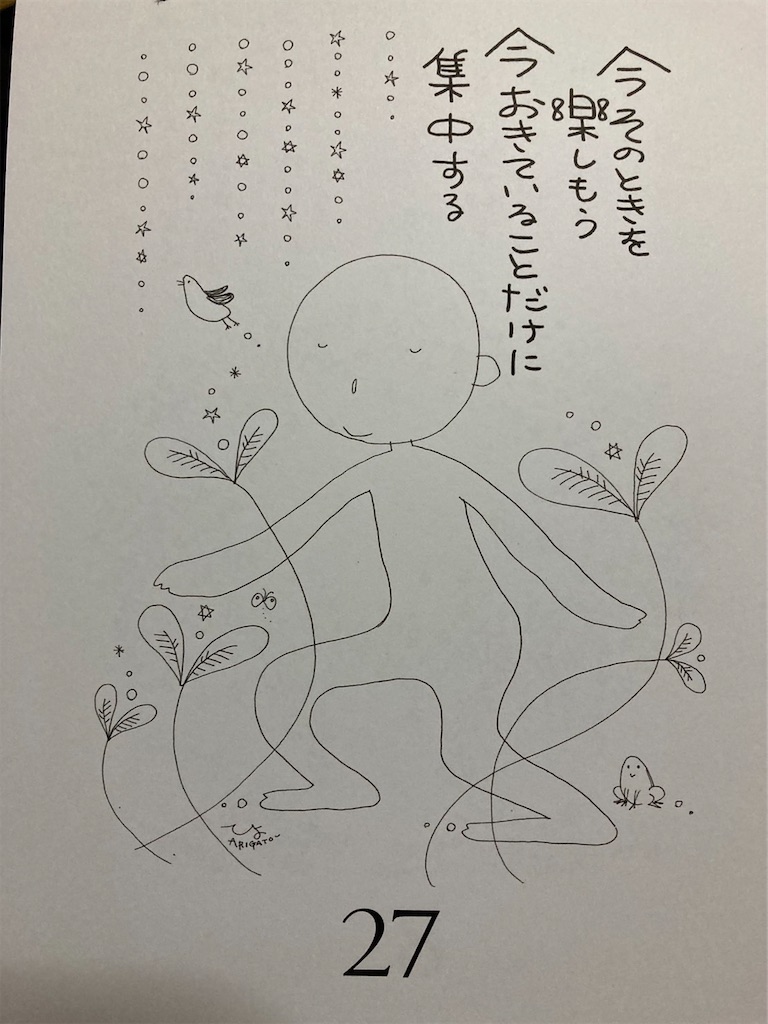 今そのときを
楽しもう
今おきていることだけに
集中する
ARIGATO~
27